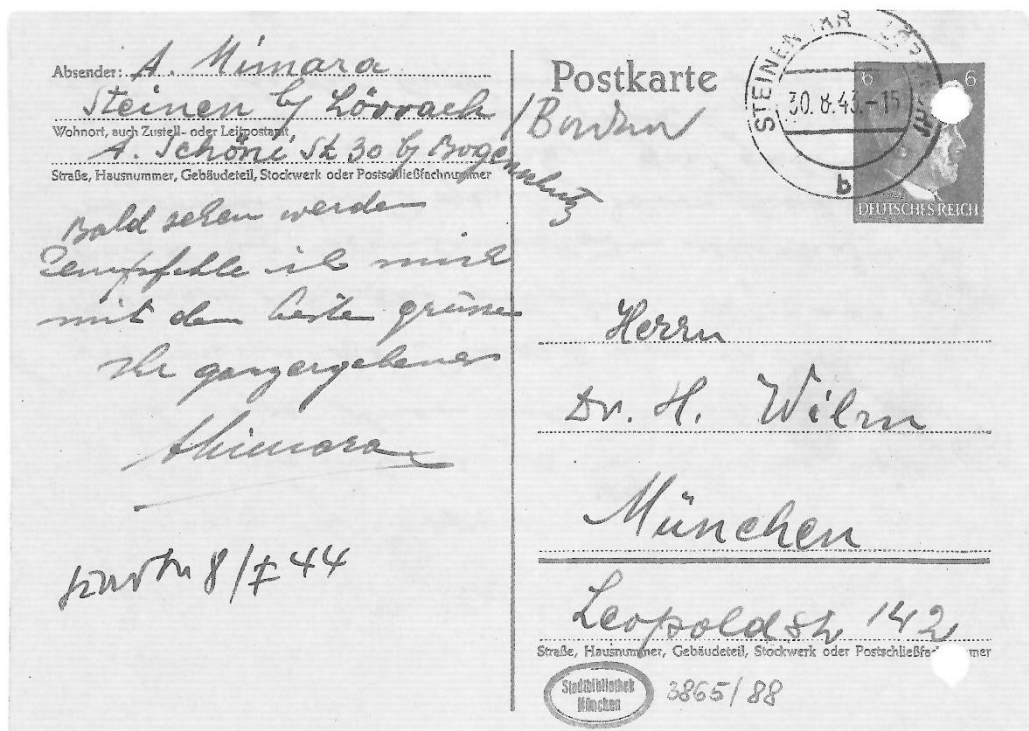 Absender: A. Mimara
Steinen b/ Lörrach / Baden
Wohnort, auch Zustell- oder Leitpostamt
A. Schöni St 30 b/
Straße, Hausnummer, Gebäudeteil, Stockwerk oder Postschließfachnummer
Bald sehen werden
empfehle ich mich
mit dem beste grüsse
Ihr ganzergebener
AMimara
8/I 44
Postkarte
STEINEN
30.8.43.-15
b
6 6
DEUTSCHES REICH
Herrn
Dr. H. Wilm
München
Leopoldstr 142
Straße, Hausnummer, Gebäudeteil, Stockwerk oder Postschließfachnummer
Stadtbibliothek
München
3865/88